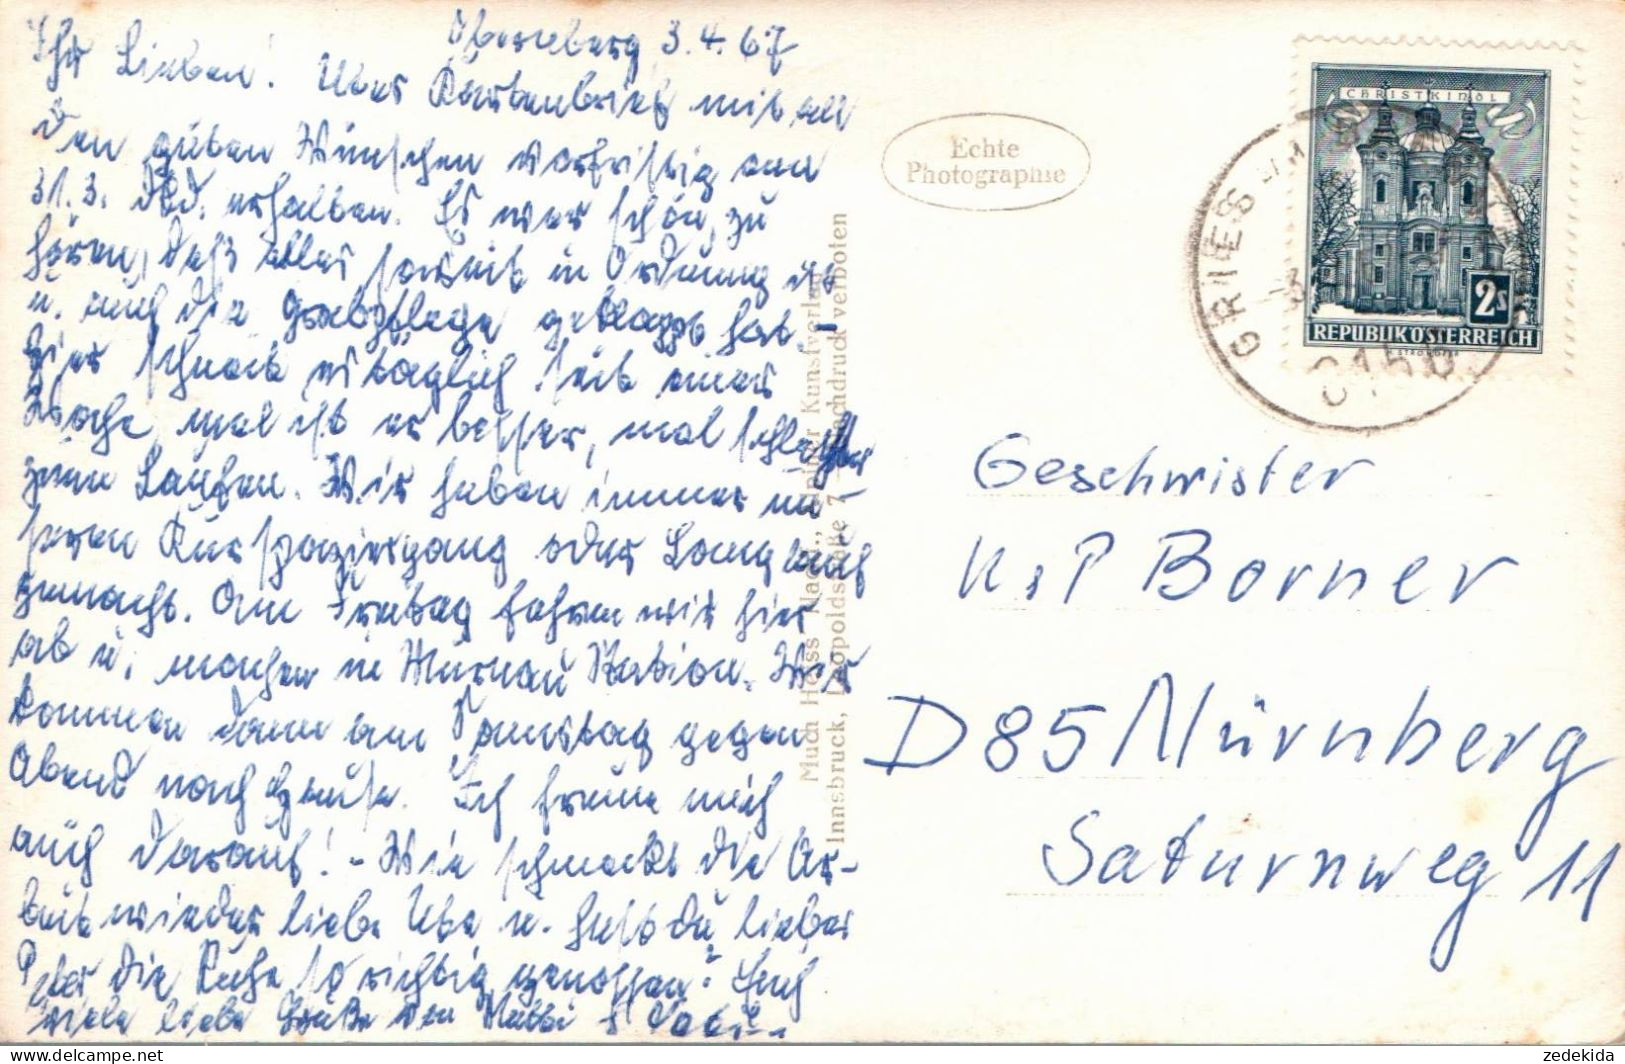 Obernberg 3.4.67
Ihr Lieben! Euer Kartenbrief mit all
den guten Wünschen vorfristig am
31.3. erhalten. Es war schön, zu
hören, daß alles soweit in Ordnung ist
u. auch die Grabpflege geklappt hat.
Hier schneit es täglich seit einer
Woche, mal ist es besser, mal schlechter
zum Laufen. Wir haben immer un-
seren Kurspaziergang oder Langlauf
gemacht. Am Freitag fahren wir hier
ab u. machen in Murnau Station. Wir
kommen dann am Samstag gegen
Abend nach Hause. Ich freue mich
auch darauf! - Wie schmeckt die Ar-
beit wieder liebe Ute u. hast du, lieber
Peter die Ruhe so richtig genossen? Euch
viele liebe Grüße von Mutti +
Echte
Photographie
Innsbruck, Leopoldstraße 7 - Nachdruck verboten
CHRISTKINDL
2s
REPUBLIK ÖSTERREICH
GRIES AM
Geschwister
U + P Borner
D 85 Nürnberg
Saturnweg 11
delcampe.net
zedekida